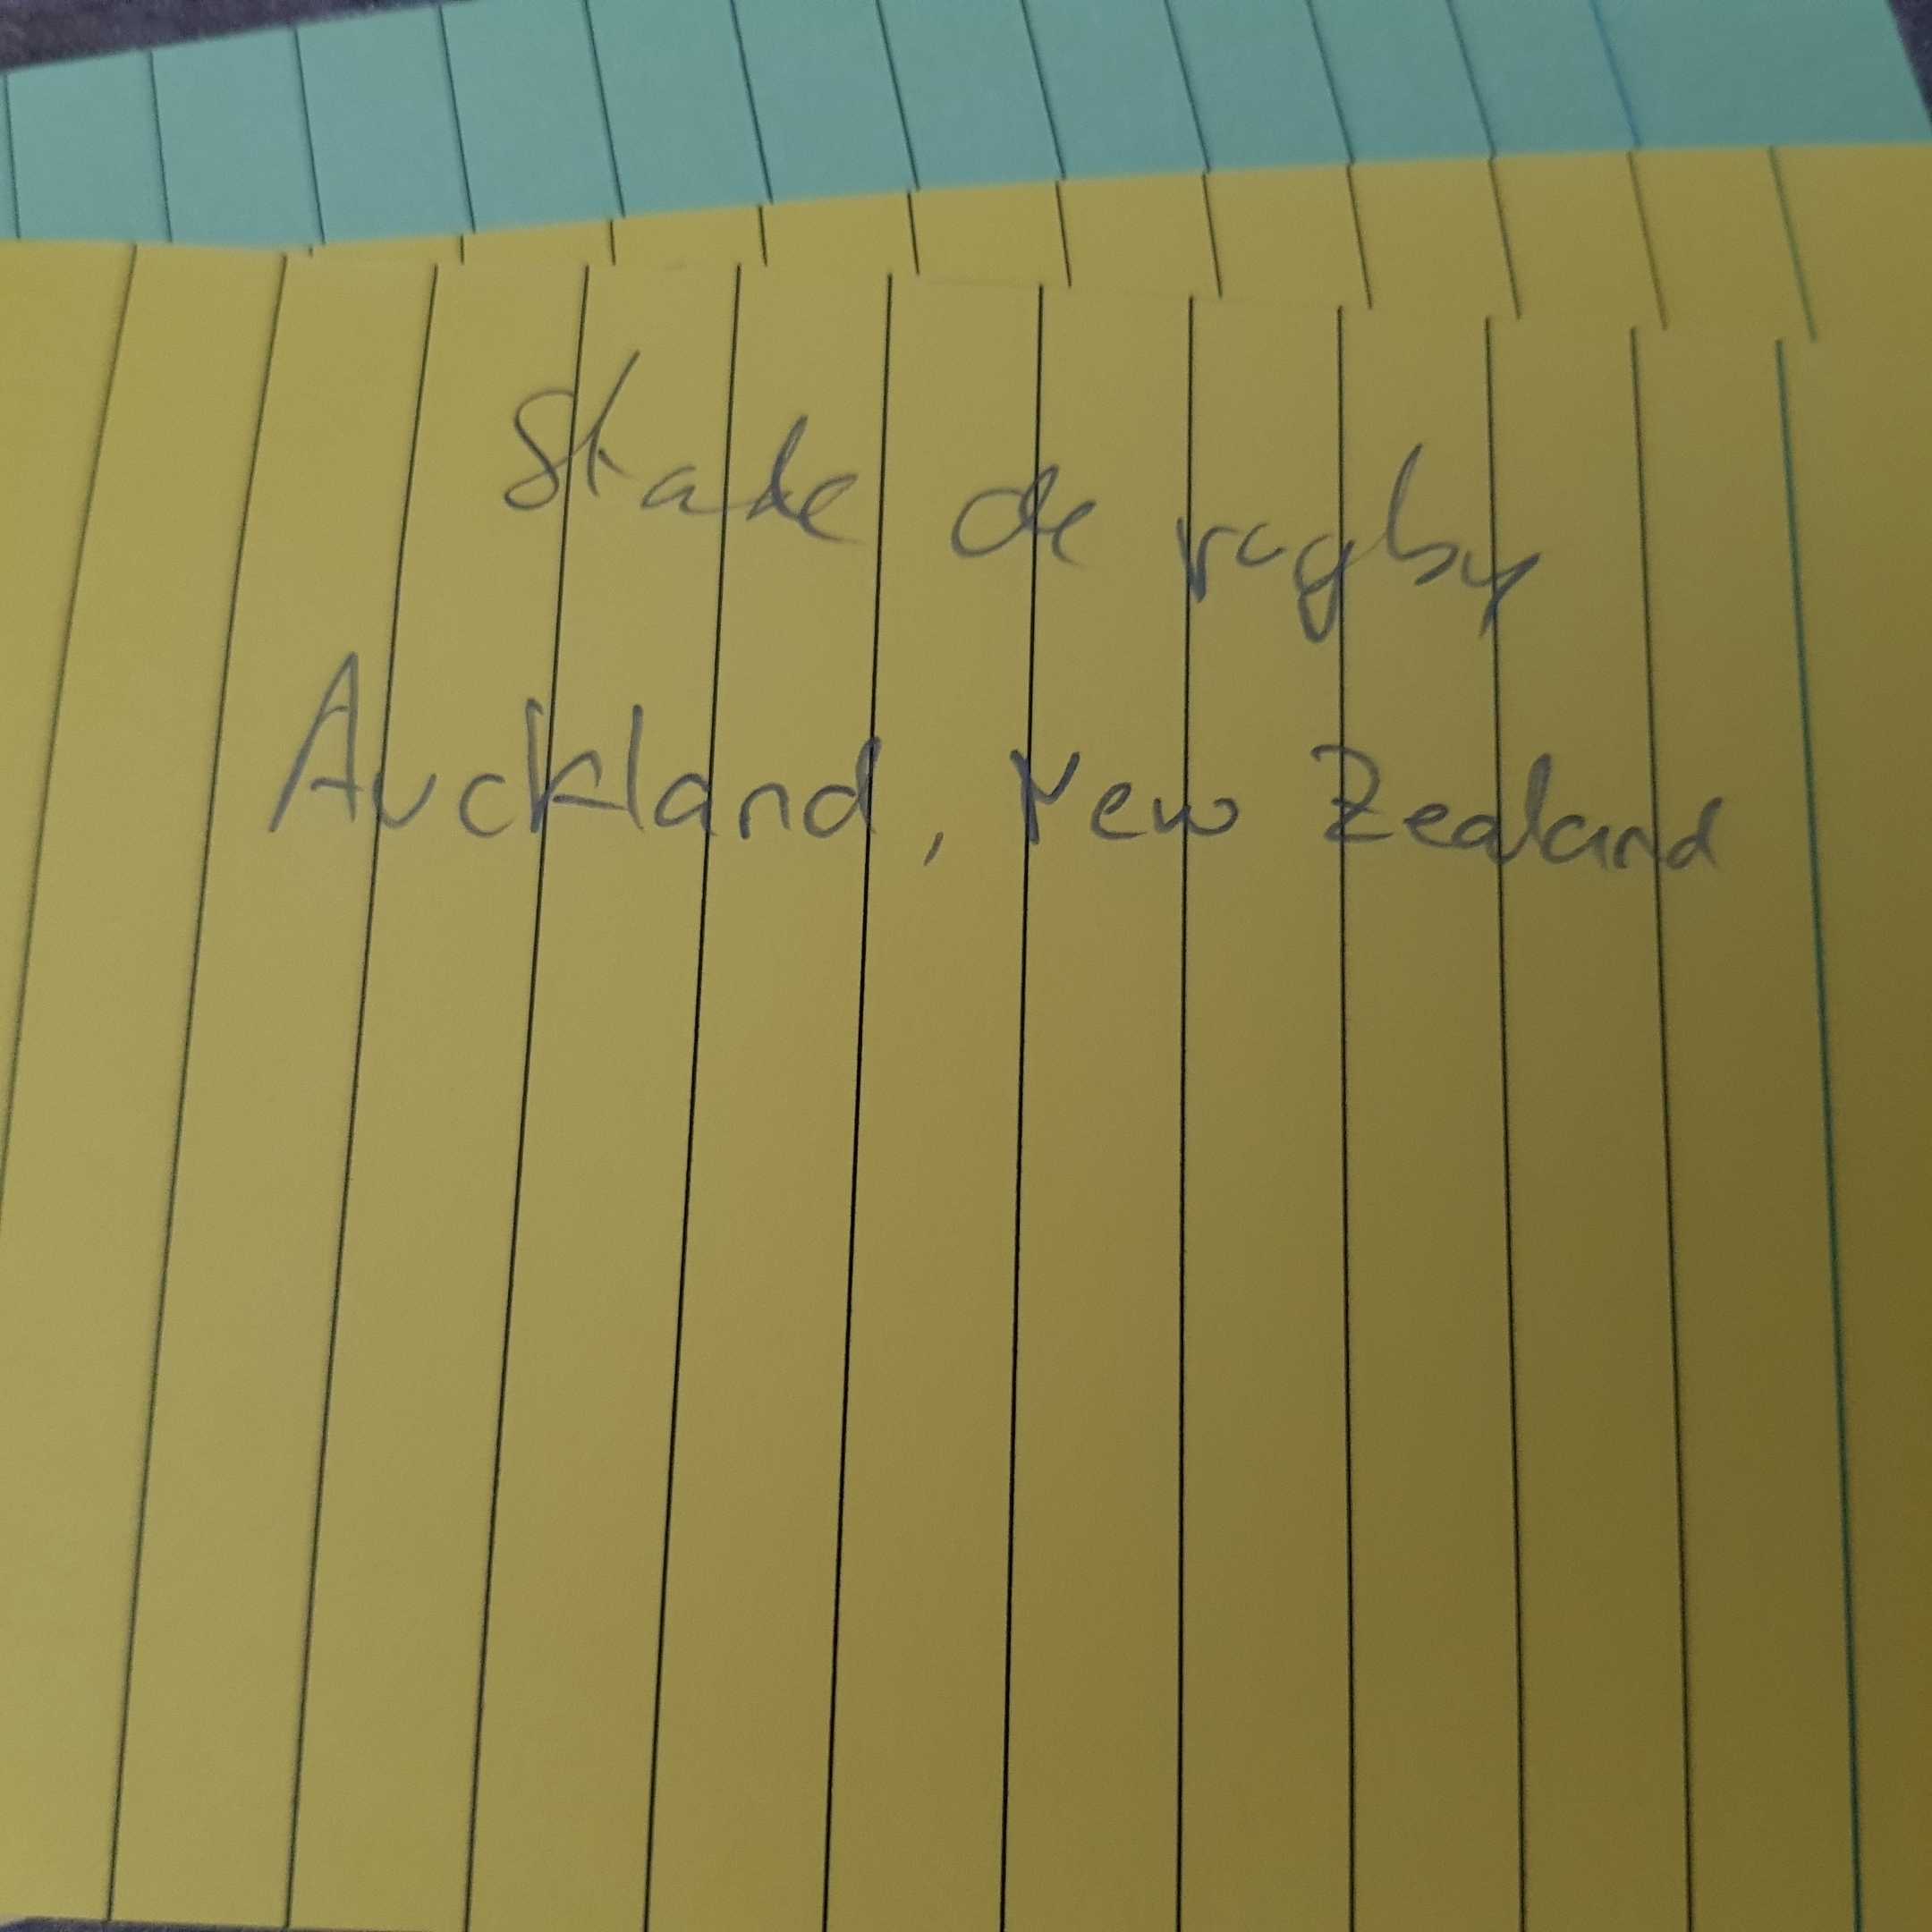 Stade de rugby
Auckland, New Zealand